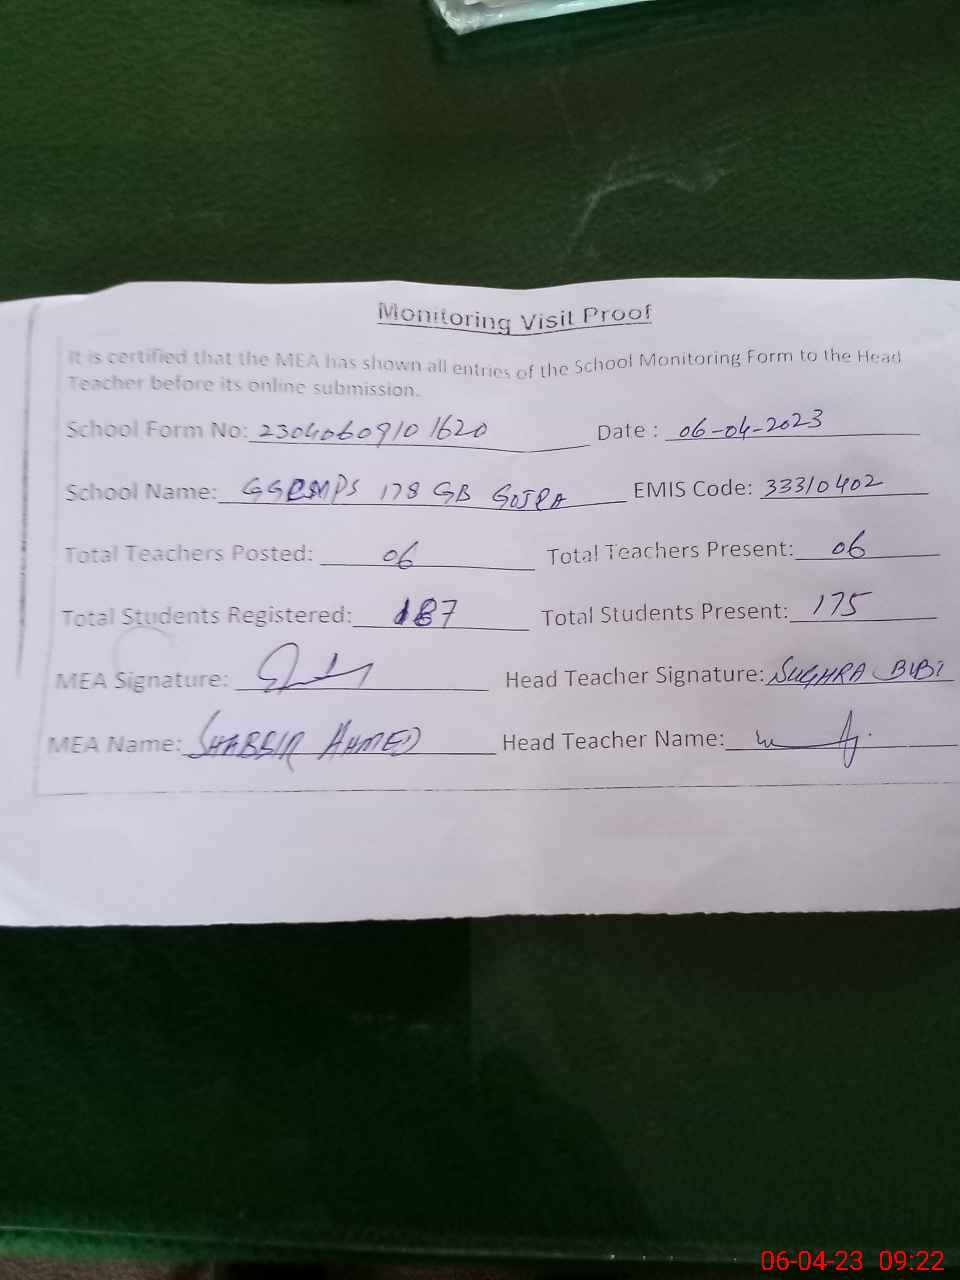 Monitoring Visit Proof
It is certified that the MEA has shown all entries of the School Monitoring Form to the Head
Teacher before its online submission.
School Form No: 23040609101620 Date : 06-04-2023
School Name: 178 GB EMIS Code: 33310402
Total Teachers Posted: 06 Total Teachers Present: 06
Total Students Registered: 187 Total Students Present: 175
MEA Signature: Head Teacher Signature: SUGHRA BIBI
MEA Name: SHABBIR AHMED Head Teacher Name:
06-04-23 09:22